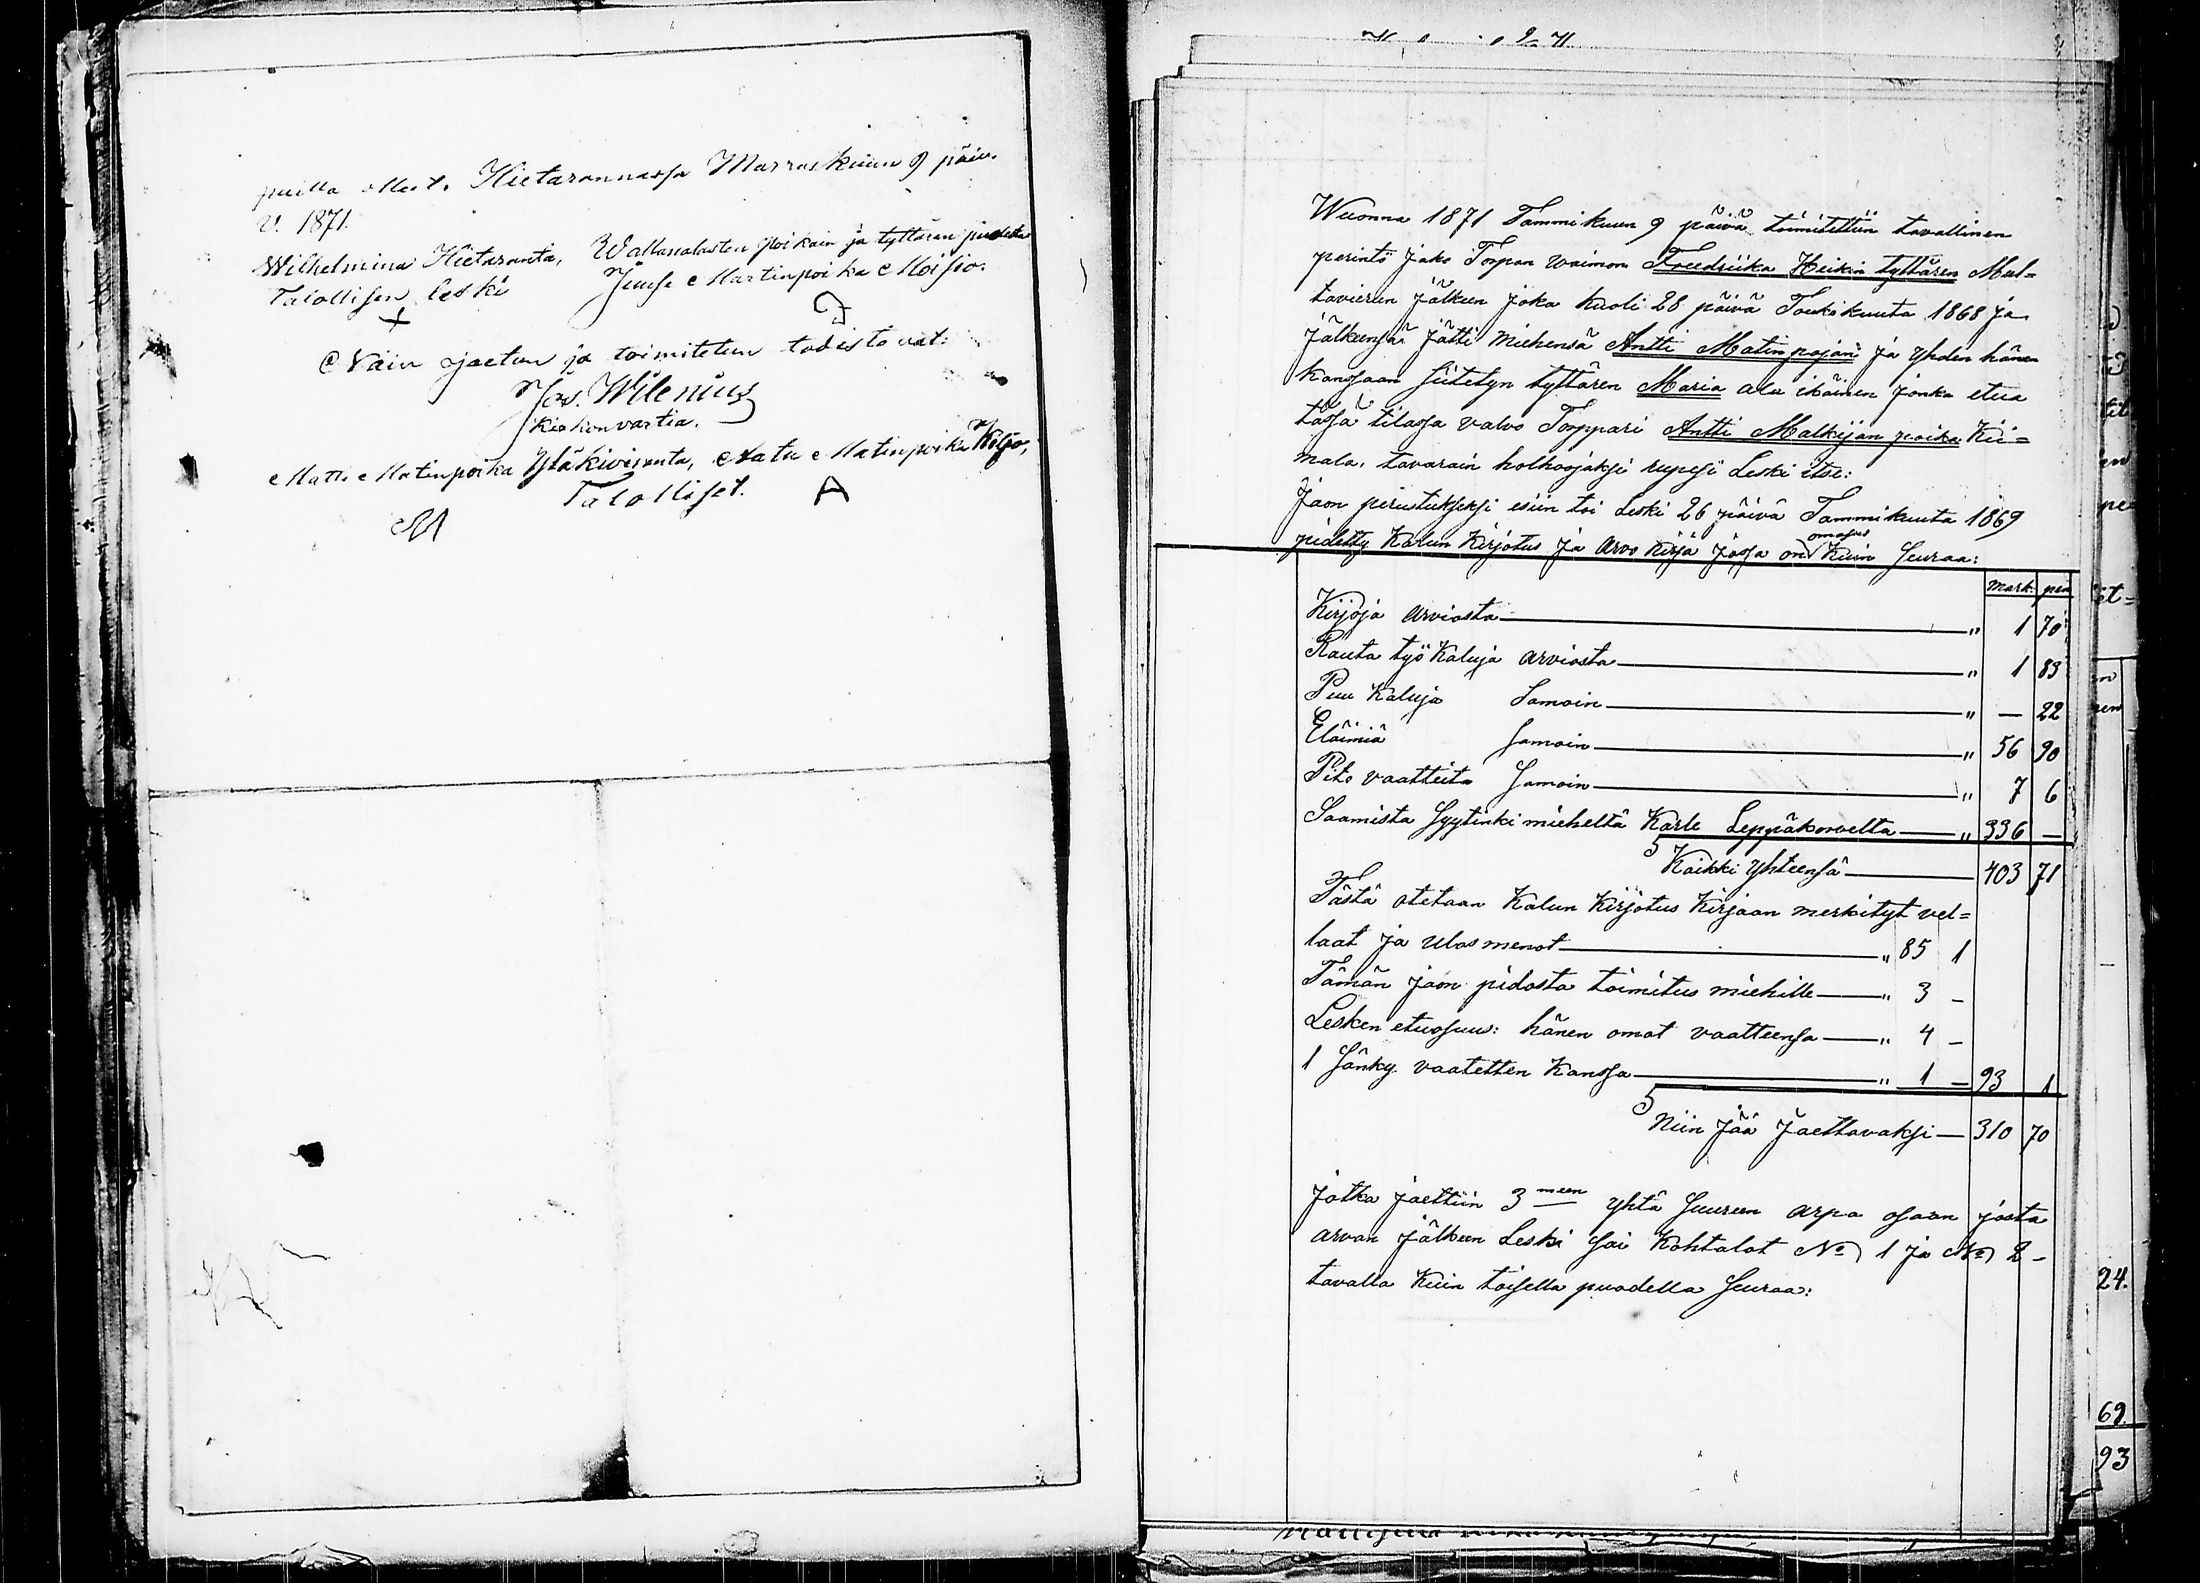 puilla ollest. Hietarannassa Marraskuun 9 päiv.
v. 1871.
Wilhelmina Hietaranta,
Talollisen leski
Wallanalasten poikain ja tyttären puolesta
Juuse Martinpoika Moisio.
Näin jaetun ja toimitetun todistavat:
Joh. Wilenius
kirkonvartia.
Matti Matinpoika Yläkivironta, Aatu Matinpoika Wilpo,
Talolliset.
A
Wuonna 1871 Tammikuun 9 päivä toimitettiin tavallinen
perintö Jako Torpan waimon Freedriika Heikin tyttären Mal-
tavierun Jälkeen Joka kuoli 28 päivä Toukokuuta 1868 ja
Jälkeensä Jätti miehensä Antti Matinpojan Ja yhden hänen
kanssaan siitetyn tyttären Maria ala ikäinen Jonka etua
tässä tilassa valvo Torppari Antti Malkijan poika Kii=
mala, tavarain holhoojaksi rupesi Leski itse:
Jaon perustukseksi esiin toi Leski 26 päivä Tammikuuta 1869
pidetty Kalun Kirjotus Ja Arvo Kirja Jossa on omasus Kuin seuraa:
mark. pen
Kirjoja arviosta " 1 70
Rauta työ kaluja arviosta " 1 83
Puu Kaluja Samoin " — 22
Eläimiä Samoin " 56 90
Pito vaatteita Samoin " 7 6
Saamista Syytinki mieheltä Karle Leppäkorvelta " 336 —
Kaikki Yhteensä 403 71
Tästä otetaan Kalun Kirjotus Kirjaan merkityt vel=
laat Ja ulos menot " 85 1
Tämän Jaon pidosta toimitus miehille " 3 —
Lesken etuosuus: hänen omat vaatteensa " 4 —
1 Sänky vaatetten Kanssa " 1 — 93 1
Niin Jää Jaettavaksi 310 70
Jotka Jaettiin 3 meen yhtä suureen arpa osaan josta
arvan Jälkeen Leski sai Kohtalot No 1 Ja No 2 -
tavalla kuin toisella puodella seuraa:
24.
69.
93